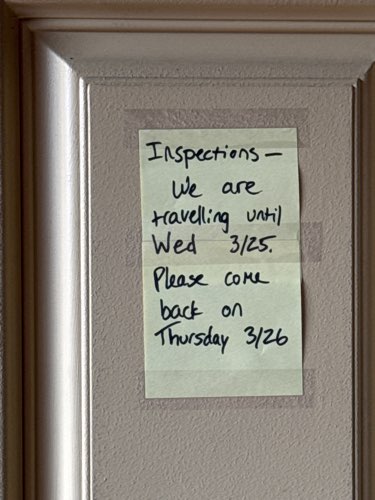 Inspections —
We are
travelling until
Wed 3/25.
Please come
back on
Thursday 3/26